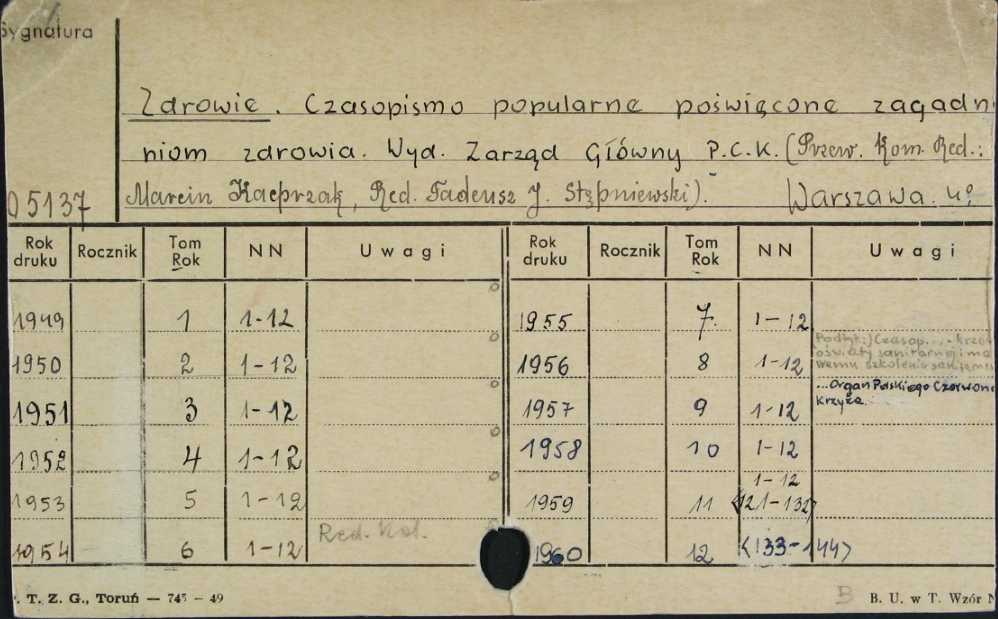 Sygnatura
Zdrowie. Czasopismo popularne poświęcone zagadn
niom zdrowia. Wyd. Zarząd Główny P.C.K. (Przew. Kom. Red.:
05137 Marcin Kacprzak, Red. Tadeusz J. Stępniewski). Warszawa. 4°
Rok druku Rocznik Tom Rok NN Uwagi Rok druku Rocznik Tom Rok NN Uwagi
1949 1 1-12 1955 7. 1-12
1950 2 1-12 1956 8 1-12 Podtyt.: Czasop. ... krzew
oświaty sanitarnej i ma
wemu szkoleniu sanitarnemu
1951 3 1-12 1957 9 1-12 ...Organ Polskiego Czerwono
Krzyża.
1952 4 1-12 1958 10 1-12
1953 5 1-12 1959 11 1-12
<121-132>
1954 6 1-12 Red. Kol. 1960 12 <133-144>
. T. Z. G., Toruń — 745 - 49 B B. U. w T. Wzór N